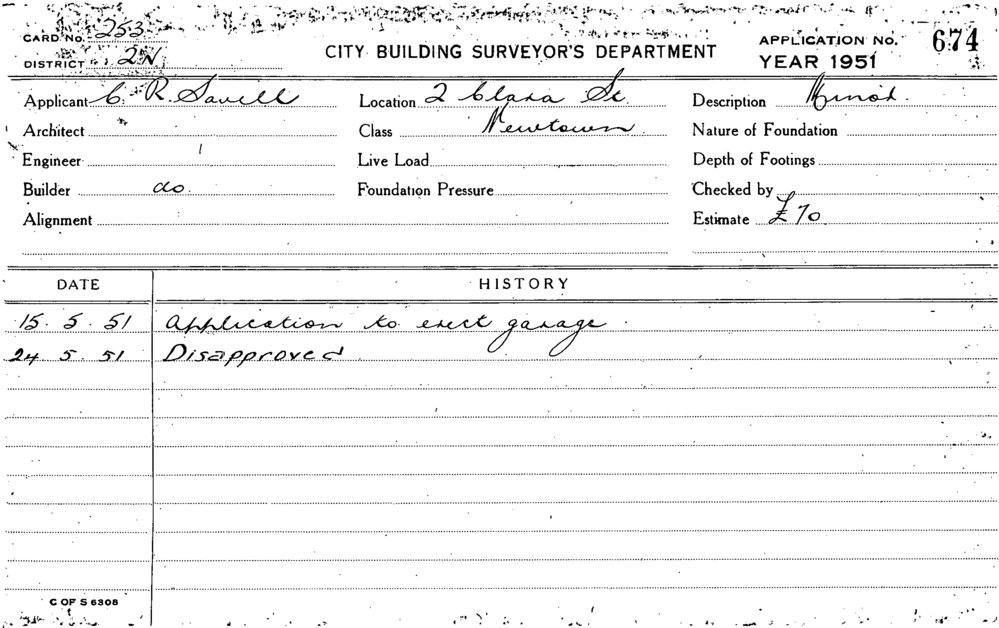 CARD No. 253
DISTRICT 2N
CITY BUILDING SURVEYOR'S DEPARTMENT
APPLICATION No. 674
YEAR 1951
Applicant C. R. Savell
Location 2 Clara St.
Description Minor.
Architect
Class Newtown
Nature of Foundation
Engineer
Live Load
Depth of Footings
Builder do.
Foundation Pressure
Checked by
Alignment
Estimate £70
DATE HISTORY
15. 5. 51 Application to erect garage
24. 5. 51 Disapproved
C OF S 6308